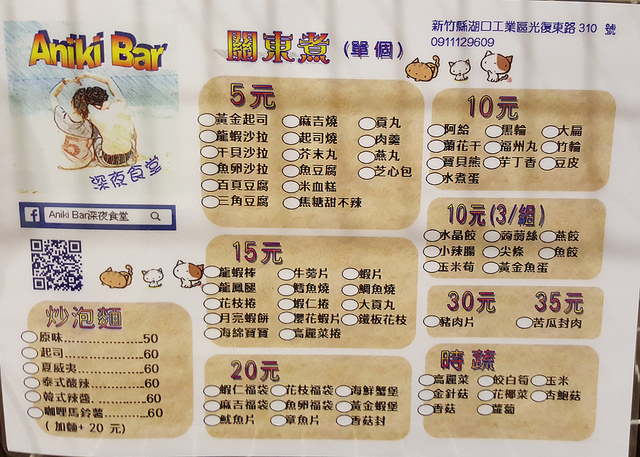 Aniki Bar
深夜食堂
Aniki Bar深夜食堂
關東煮 (單個)
新竹縣湖口工業區光復東路 310 號
0911129609
5元
黃金起司 麻吉燒 貢丸
龍蝦沙拉 起司燒 肉羹
干貝沙拉 芥末丸 燕丸
魚卵沙拉 魚豆腐 芝心包
百頁豆腐 米血糕
三角豆腐 焦糖甜不辣
10元
阿給 黑輪 大扁
蘭花干 福州丸 竹輪
寶貝熊 芋丁香 豆皮
水煮蛋
10元(3/組)
水晶餃 蒟蒻絲 燕餃
小辣腸 尖條 魚餃
玉米筍 黃金魚蛋
15元
龍蝦棒 牛蒡片 蝦片
龍鳳腿 鱈魚燒 鯛魚燒
花枝捲 蝦仁捲 大貢丸
月亮蝦餅 櫻花蝦片 鐵板花枝
海綿寶寶 高麗菜捲
30元 35元
豬肉片 苦瓜封肉
炒泡麵
原味..................50
起司..................60
夏威夷..............60
泰式酸辣..........60
韓式辣醬..........60
咖哩馬鈴薯......60
(加麵+ 20 元)
20元
蝦仁福袋 花枝福袋 海鮮蟹堡
麻吉福袋 魚卵福袋 黃金蝦堡
魷魚片 章魚片 香菇封
時蔬
高麗菜 皎白筍 玉米
金針菇 花椰菜 杏鮑菇
香菇 蘿蔔